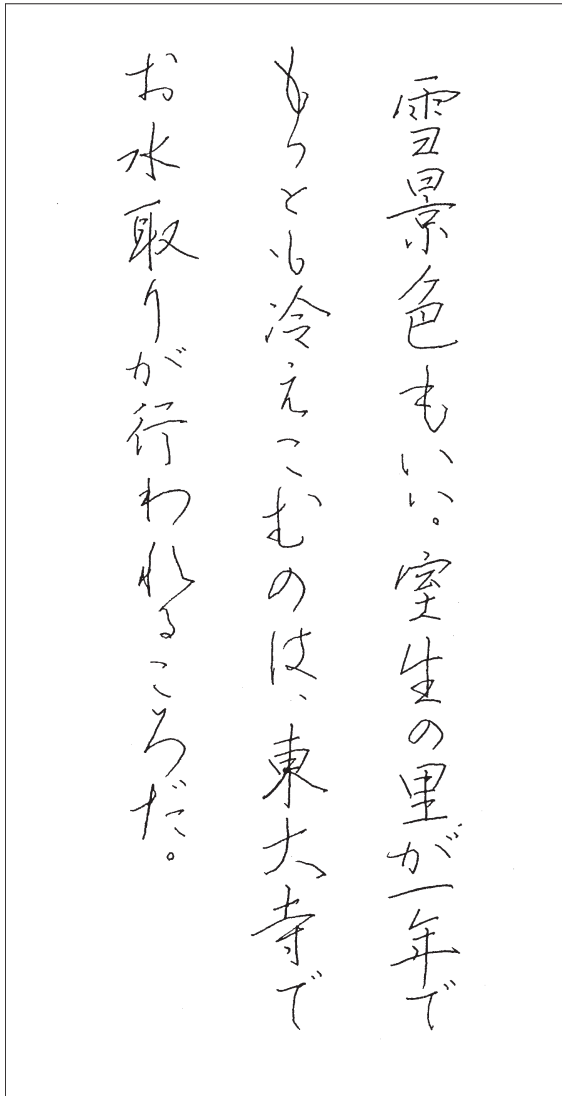 雪景色もいい。室生の里が一年で
もっとも冷えこむのは、東大寺で
お水取りが行われるころだ。